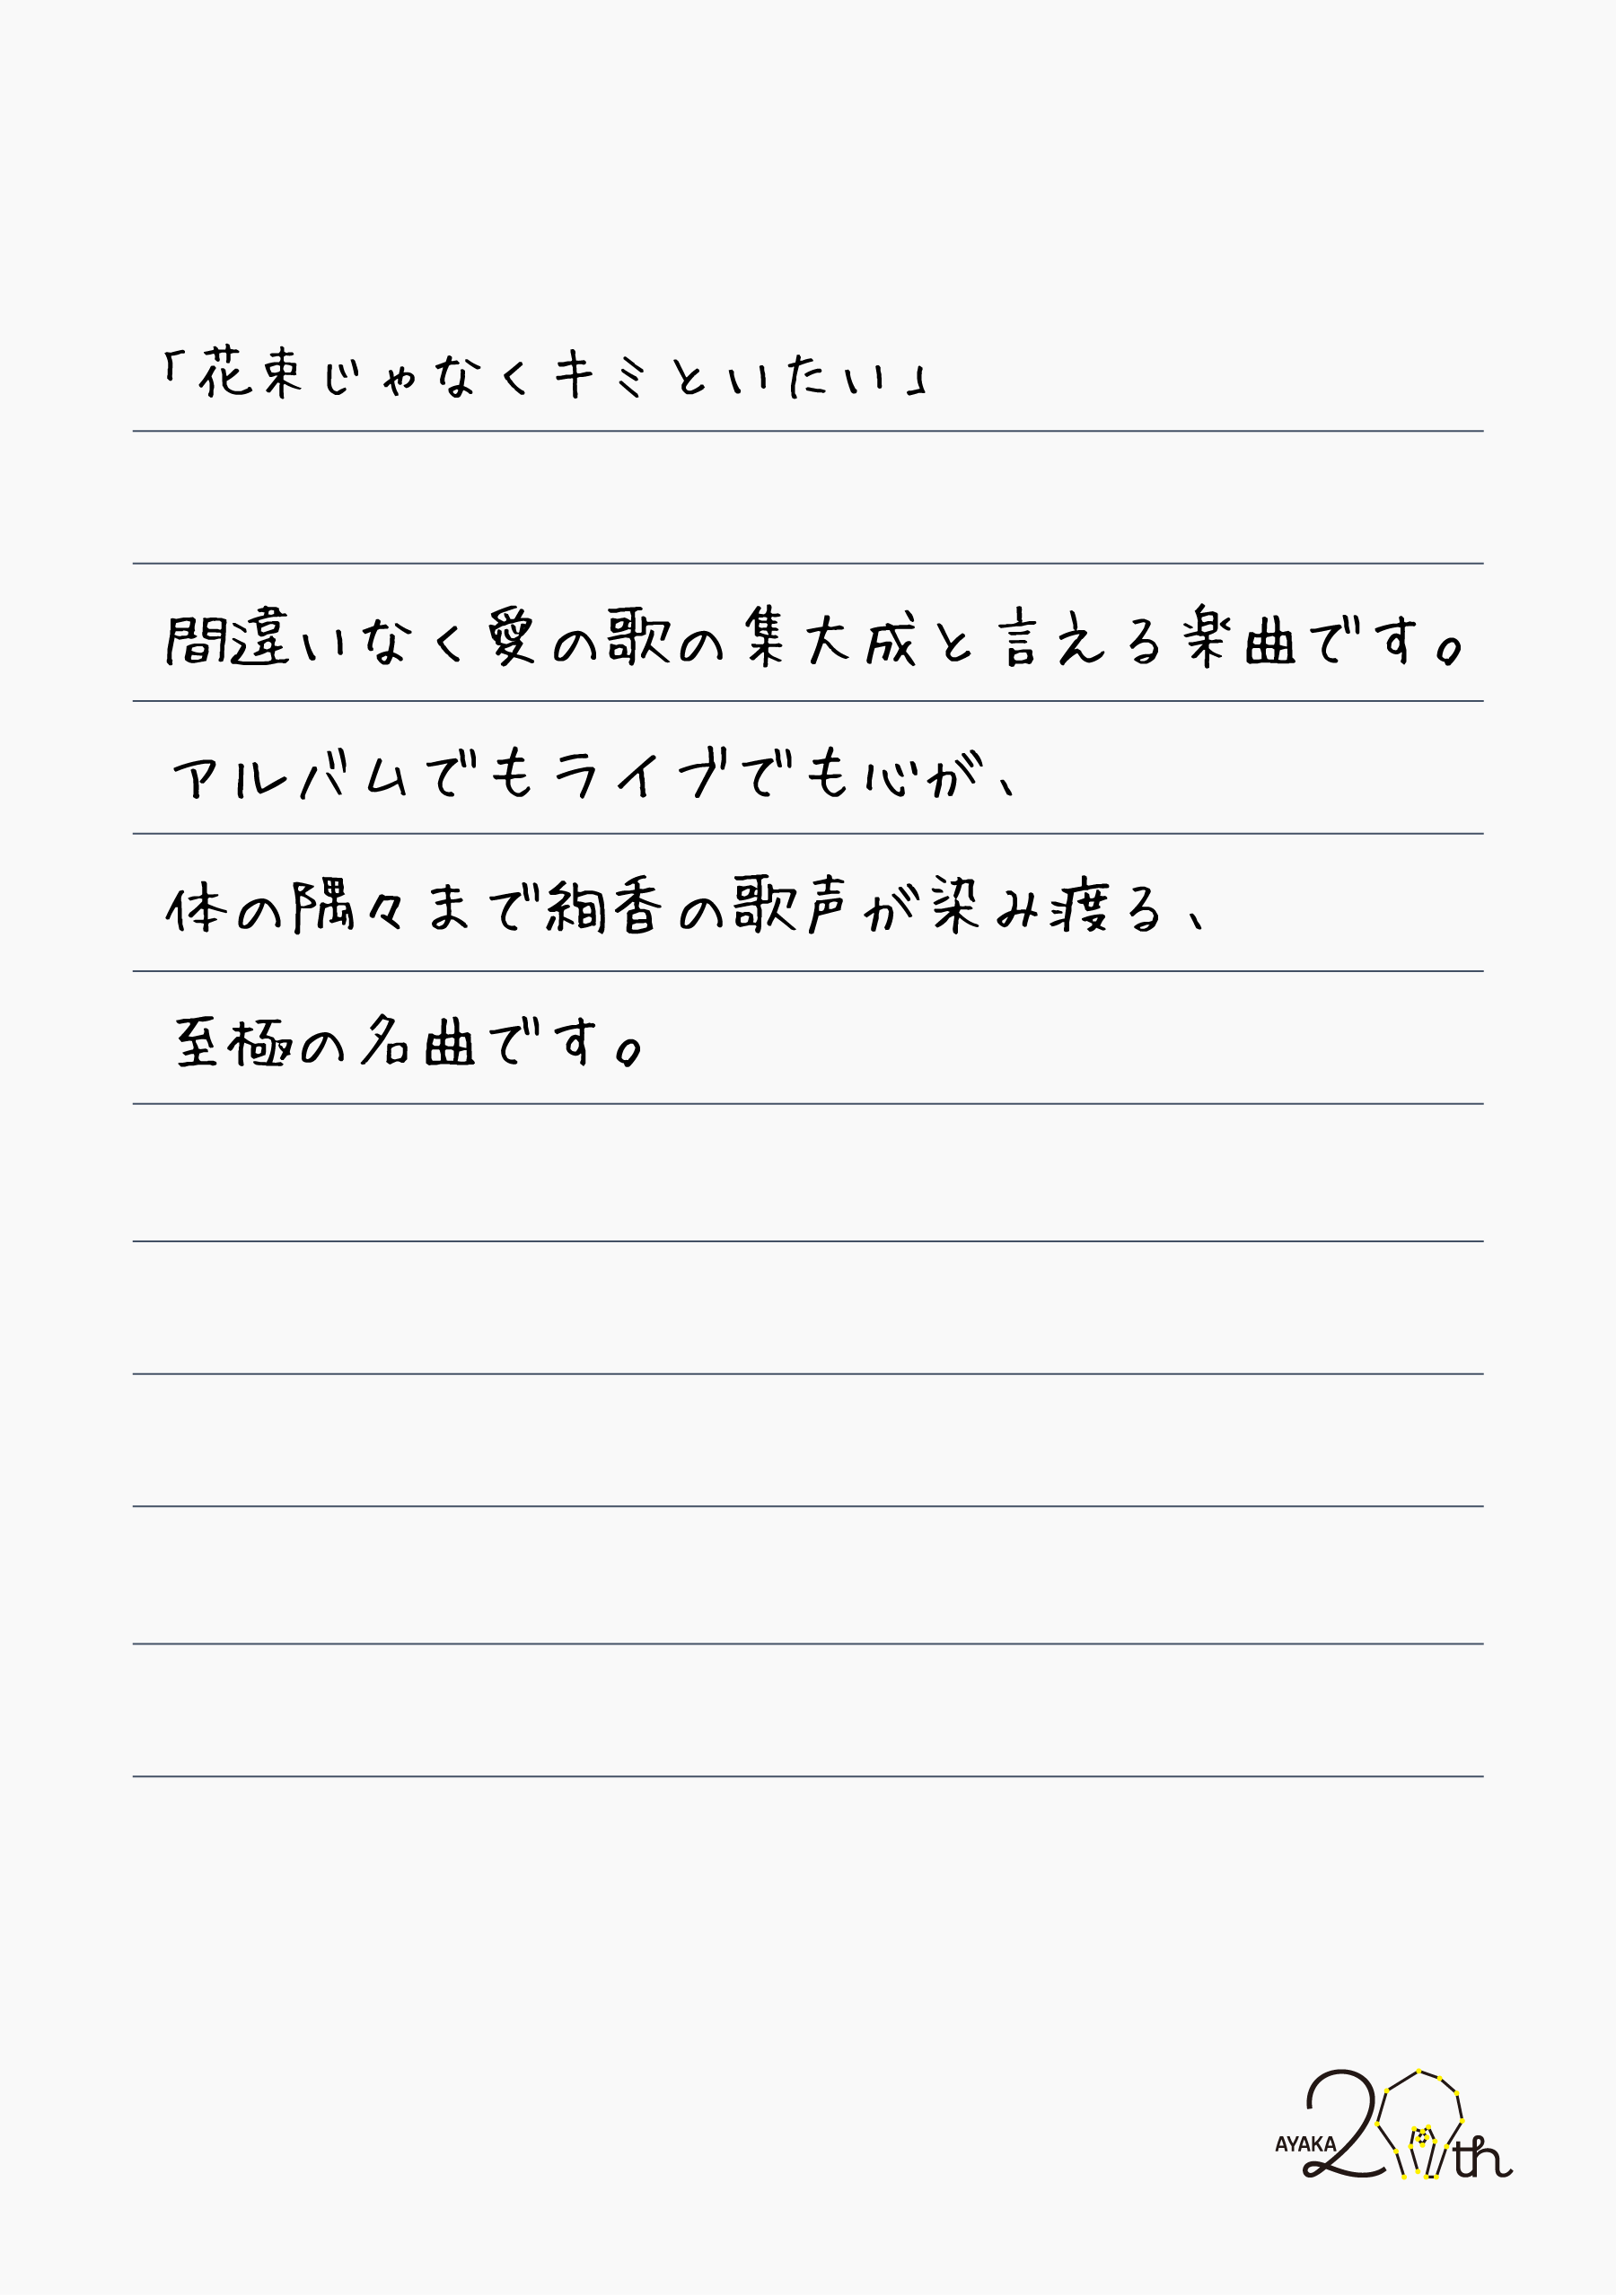 「花束じゃなくキミといたい」
間違いなく愛の歌の集大成と言える楽曲です。
アルバムでもライブでも心が、
体の隅々まで絢香の歌声が染み渡る、
至極の名曲です。
AYAKA 20th